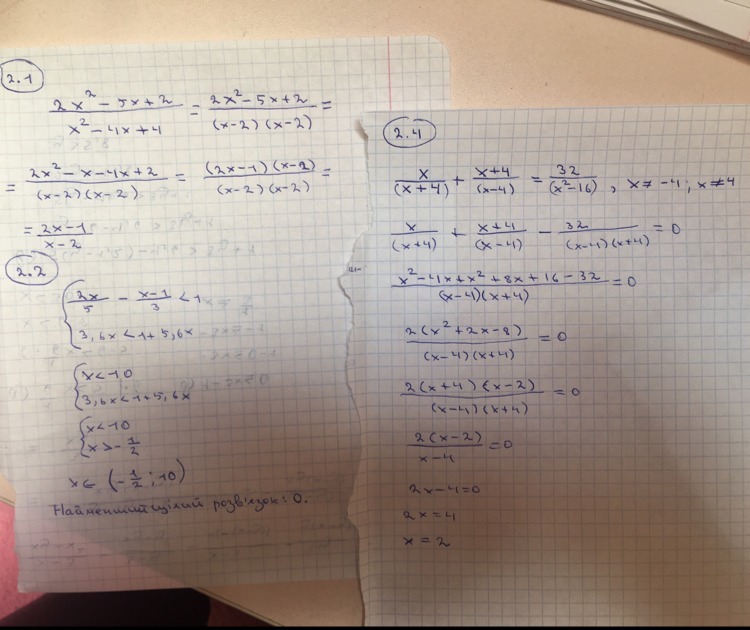 2.1
(2x² - 5x + 2)/(x² - 4x + 4) = (2x² - 5x + 2)/((x-2)(x-2)) =
= (2x² - x - 4x + 2)/((x-2)(x-2)) = ((2x-1)(x-2))/((x-2)(x-2)) =
= (2x-1)/(x-2)
2.2
{ 2x/5 - (x-1)/3 < 1
3,6x < 1 + 5,6x
{ x < 10
3,6x < 1 + 5,6x
{ x < 10
x > -1/2
x ∈ (-1/2 ; 10)
Найменший цілий розв'язок: 0.
2.4
x/(x+4) + (x+4)/(x-4) = 32/(x²-16) , x ≠ -4 ; x ≠ 4
x/(x+4) + (x+4)/(x-4) - 32/((x-4)(x+4)) = 0
(x² - 4x + x² + 8x + 16 - 32)/((x-4)(x+4)) = 0
2(x² + 2x - 8)/((x-4)(x+4)) = 0
2(x+4)(x-2)/((x-4)(x+4)) = 0
2(x-2)/(x-4) = 0
2x - 4 = 0
2x = 4
x = 2